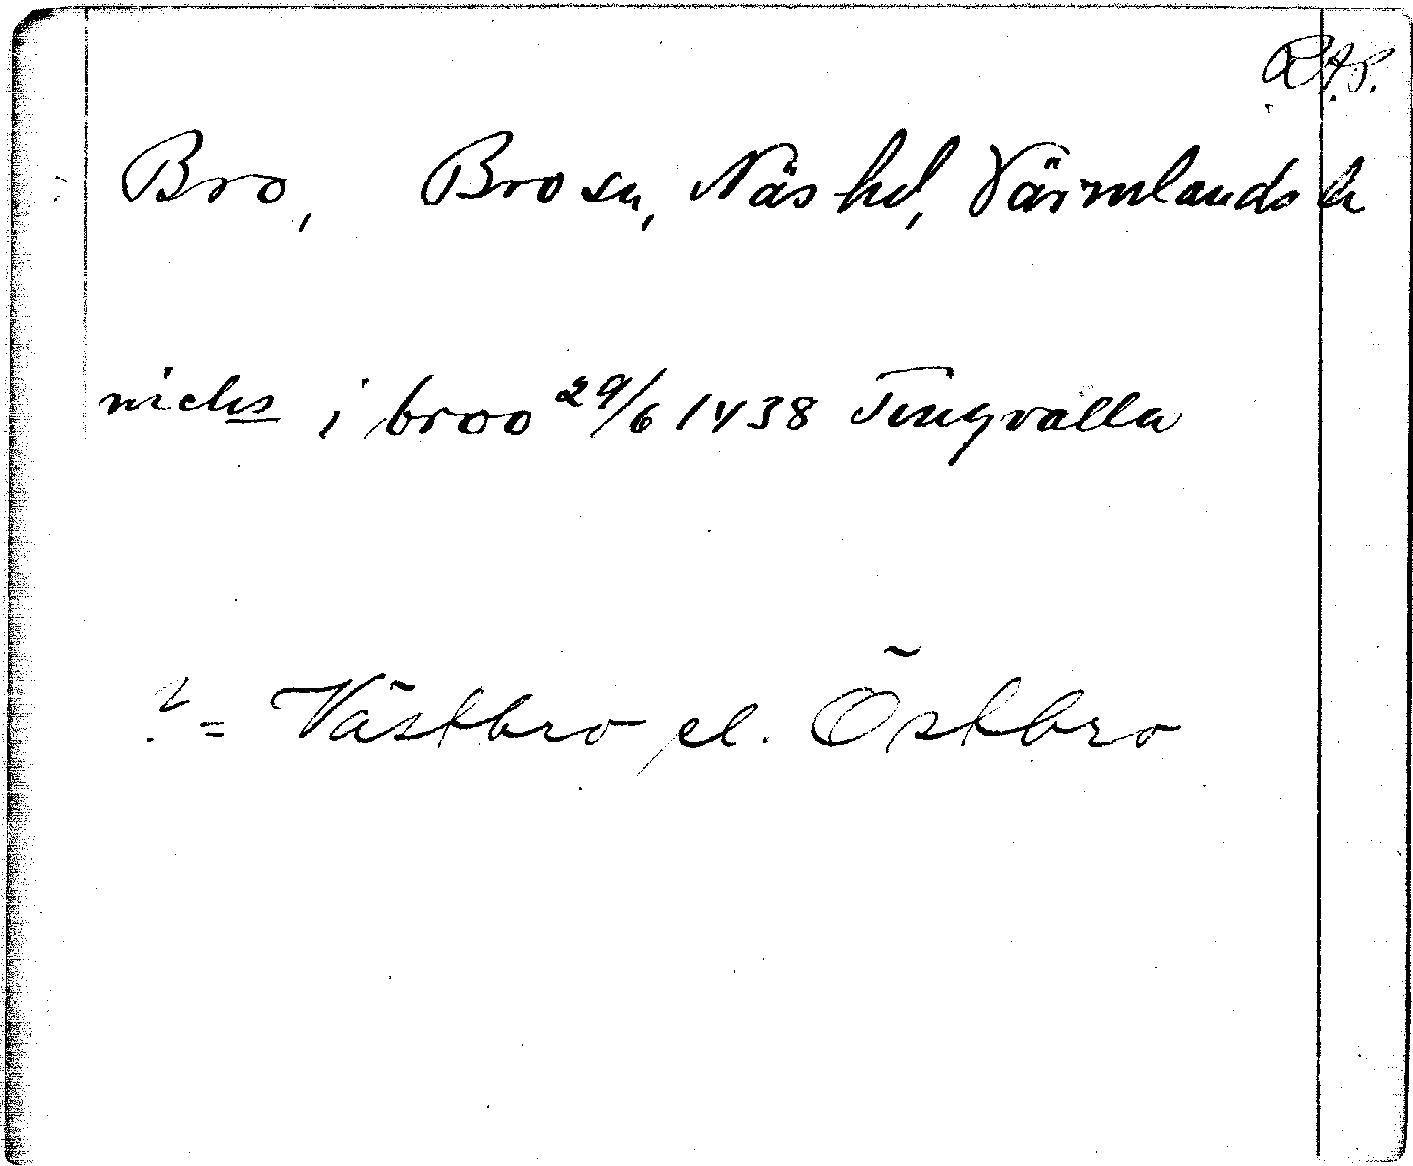 R.A.P.
Bro, Bro sn, Näs hd, Värmlands l
nichs i broo 29/6 1438 Tingvalla
? = Västbro el. Östbro